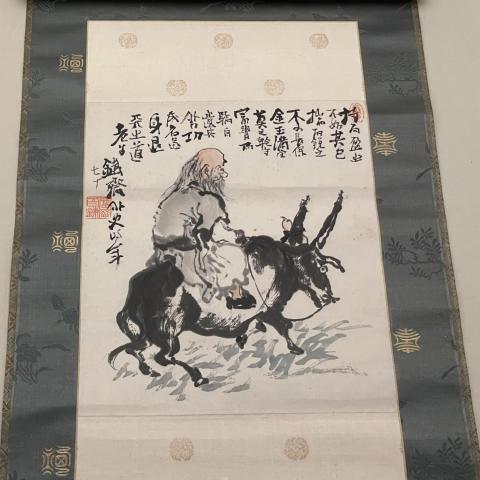 持而盈之
不如其已
揣而銳之
不可長保
金玉滿堂
莫之能守
富貴而
驕自
遺其
咎功
成名遂
身退
天之道
老子
鐵齋外史時年
七十